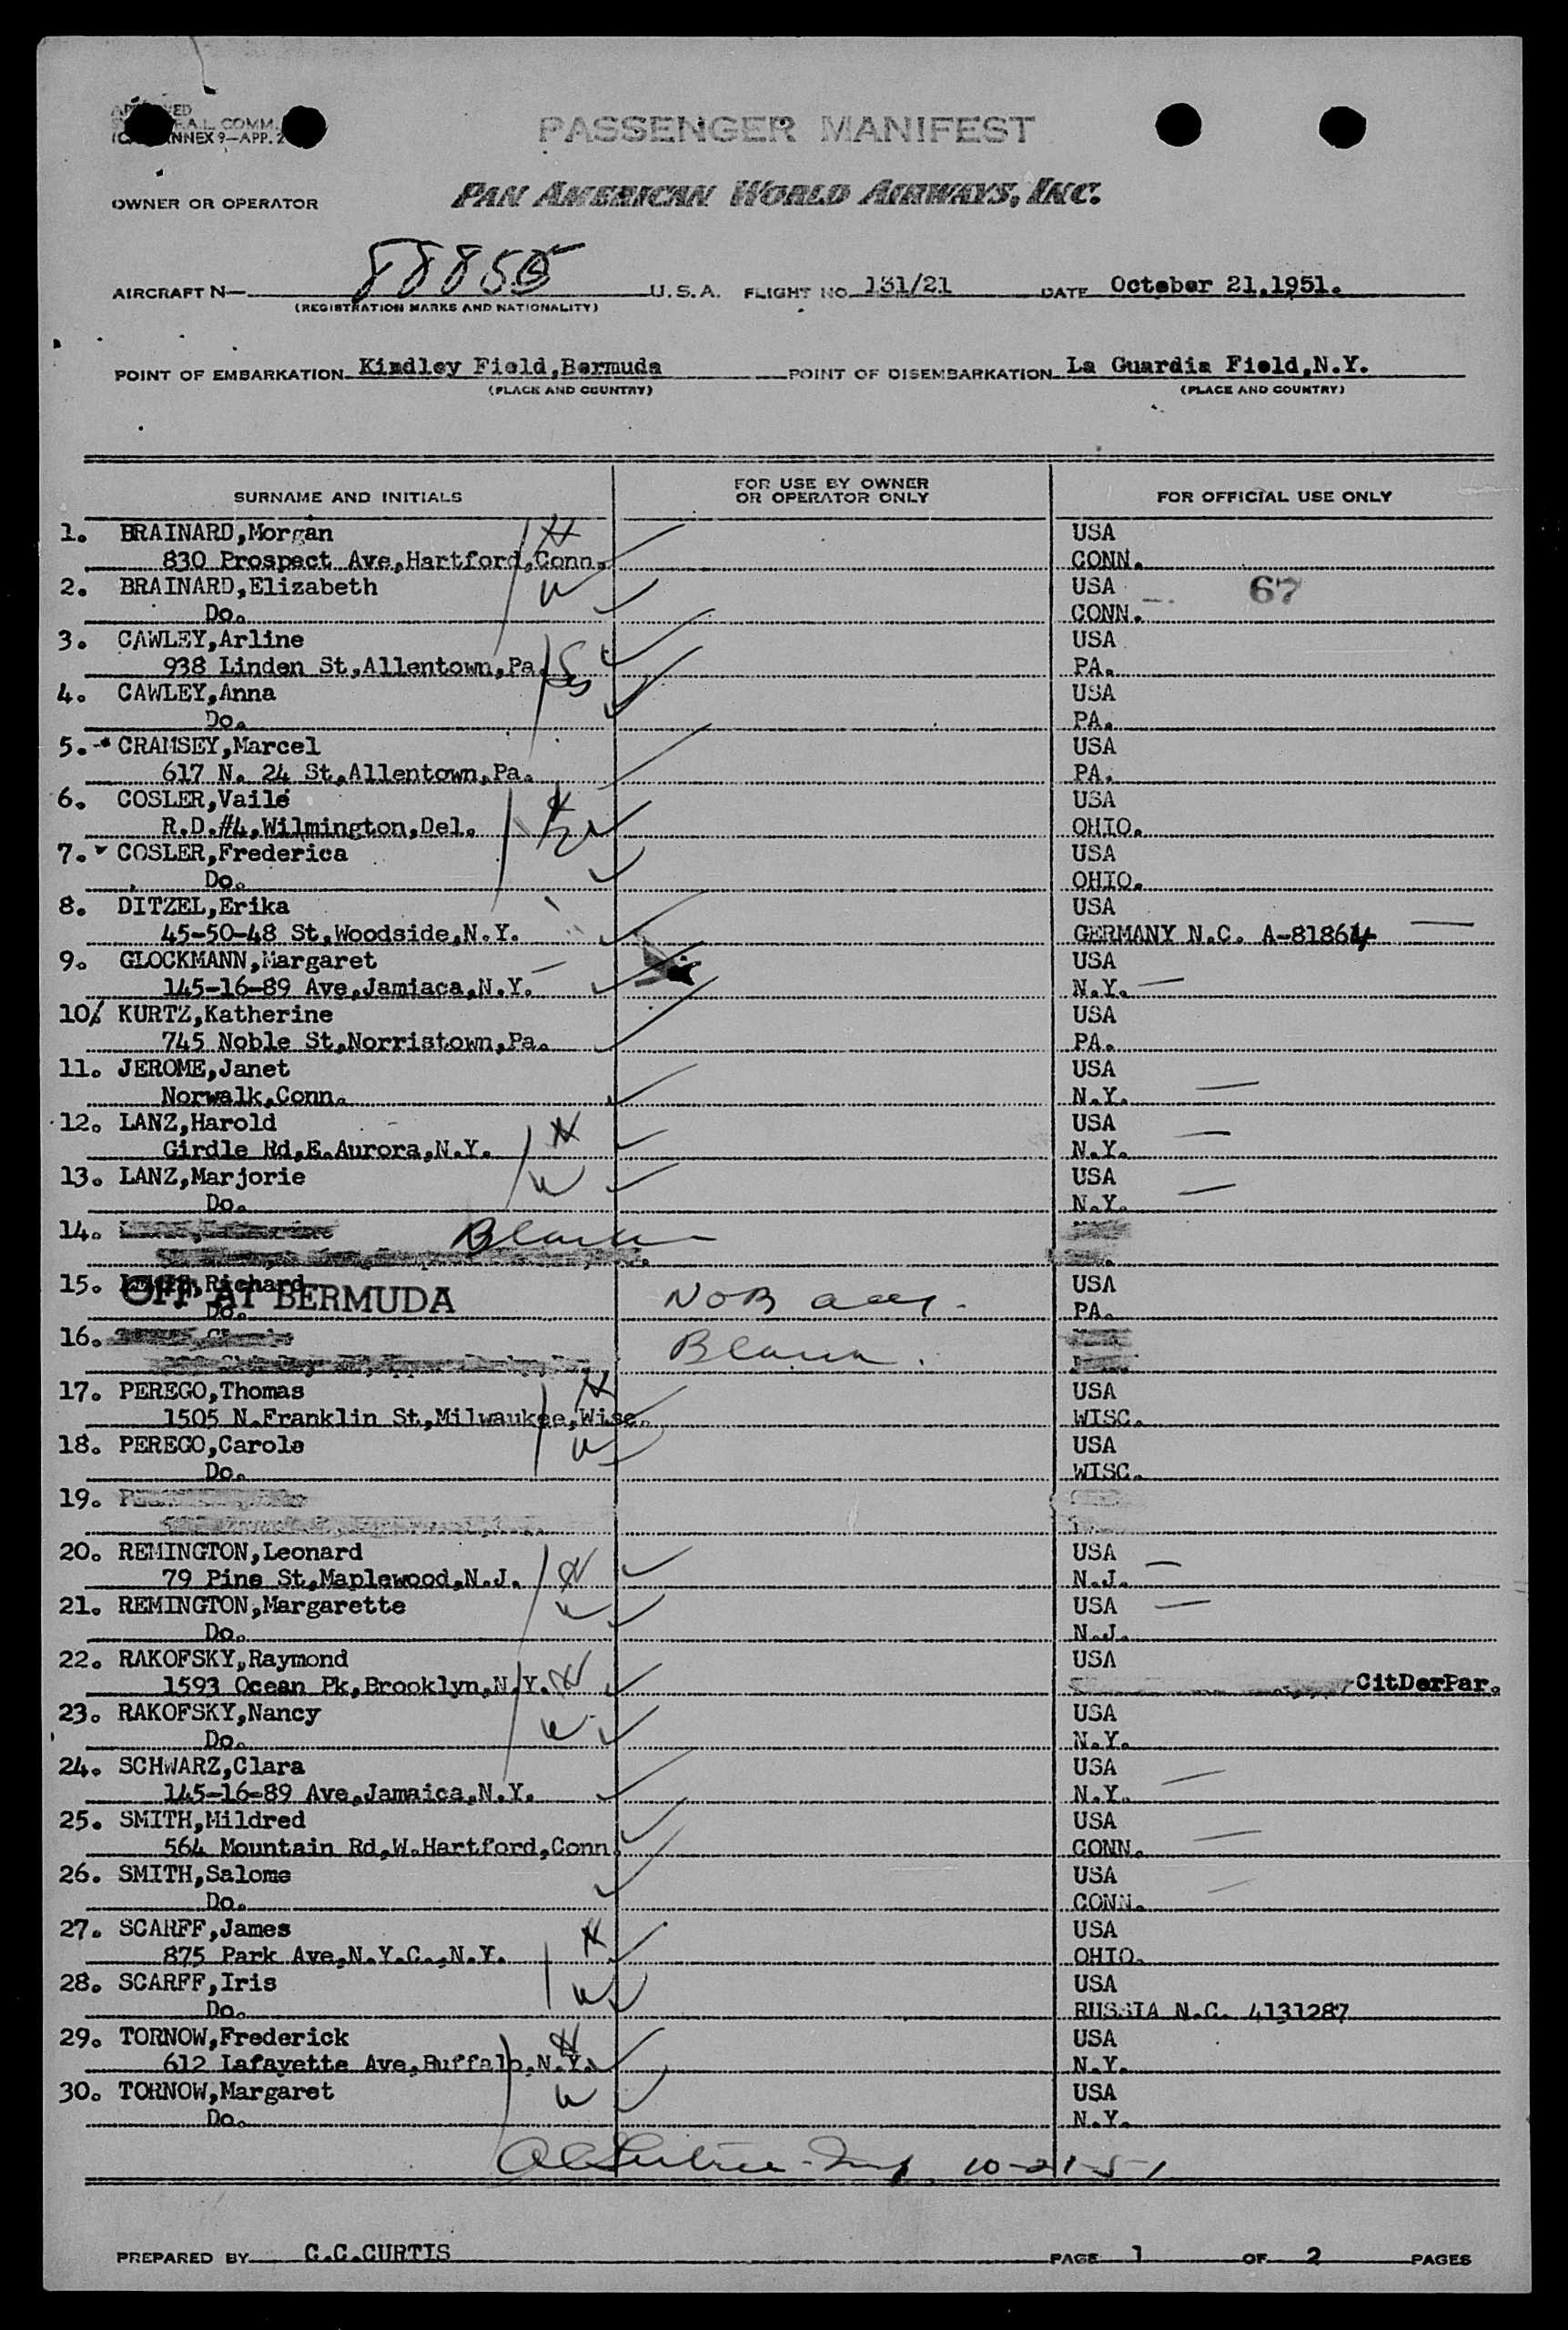 PASSENGER MANIFEST
PAN AMERICAN WORLD AIRWAYS, INC.
OWNER OR OPERATOR
AIRCRAFT N— U.S.A. FLIGHT NO. 131/21 DATE October 21,1951.
(REGISTRATION MARKS AND NATIONALITY)
POINT OF EMBARKATION Kindley Field,Bermuda POINT OF DISEMBARKATION La Guardia Field,N.Y.
(PLACE AND COUNTRY) (PLACE AND COUNTRY)
SURNAME AND INITIALS FOR USE BY OWNER OR OPERATOR ONLY FOR OFFICIAL USE ONLY
1. BRAINARD,Morgan H USA
830 Prospect Ave,Hartford,Conn. CONN.
2. BRAINARD,Elizabeth W USA 67
Do. CONN.
3. CAWLEY,Arline USA
938 Linden St,Allentown,Pa. PA.
4. CAWLEY,Anna USA
Do. PA.
5. CRAMSEY,Marcel USA
617 N. 24 St,Allentown,Pa. PA.
6. COSLER,Vaile USA
R.D.#4,Wilmington,Del. OHIO.
7. COSLER,Frederica USA
Do. OHIO.
8. DITZEL,Erika USA
45-50-48 St,Woodside,N.Y. GERMANY N.C. A-81864
9. GLOCKMANN,Margaret USA
145-16-89 Ave,Jamiaca,N.Y. N.Y.
10. KURTZ,Katherine USA
745 Noble St,Norristown,Pa. PA.
11. JEROME,Janet USA
Norwalk,Conn. N.Y.
12. LANZ,Harold H USA
Girdle Rd,E.Aurora,N.Y. N.Y.
13. LANZ,Marjorie W USA
Do. N.Y.
14. Blank
15. Richard USA
OFF AT BERMUDA NOB
Do. PA.
16. Blank
17. PEREGO,Thomas H USA
1505 N.Franklin St,Milwaukee,Wisc. WISC.
18. PEREGO,Carole W USA
Do. WISC.
19.
20. REMINGTON,Leonard H USA
79 Pine St,Maplewood,N.J. N.J.
21. REMINGTON,Margarette W USA
Do. N.J.
22. RAKOFSKY,Raymond H USA
1593 Ocean Pk,Brooklyn,N.Y. CitDerPar.
23. RAKOFSKY,Nancy W USA
Do. N.Y.
24. SCHWARZ,Clara USA
145-16-89 Ave,Jamaica,N.Y. N.Y.
25. SMITH,Mildred USA
564 Mountain Rd,W.Hartford,Conn. CONN.
26. SMITH,Salome USA
Do. CONN.
27. SCARFF,James H USA
875 Park Ave,N.Y.C.,N.Y. OHIO.
28. SCARFF,Iris W USA
Do. RUSSIA N.C. 4131287
29. TORNOW,Frederick H USA
612 Lafayette Ave,Buffalo,N.Y. N.Y.
30. TORNOW,Margaret W USA
Do. N.Y.
10-21-51
PREPARED BY C.C.CURTIS PAGE 1 OF 2 PAGES